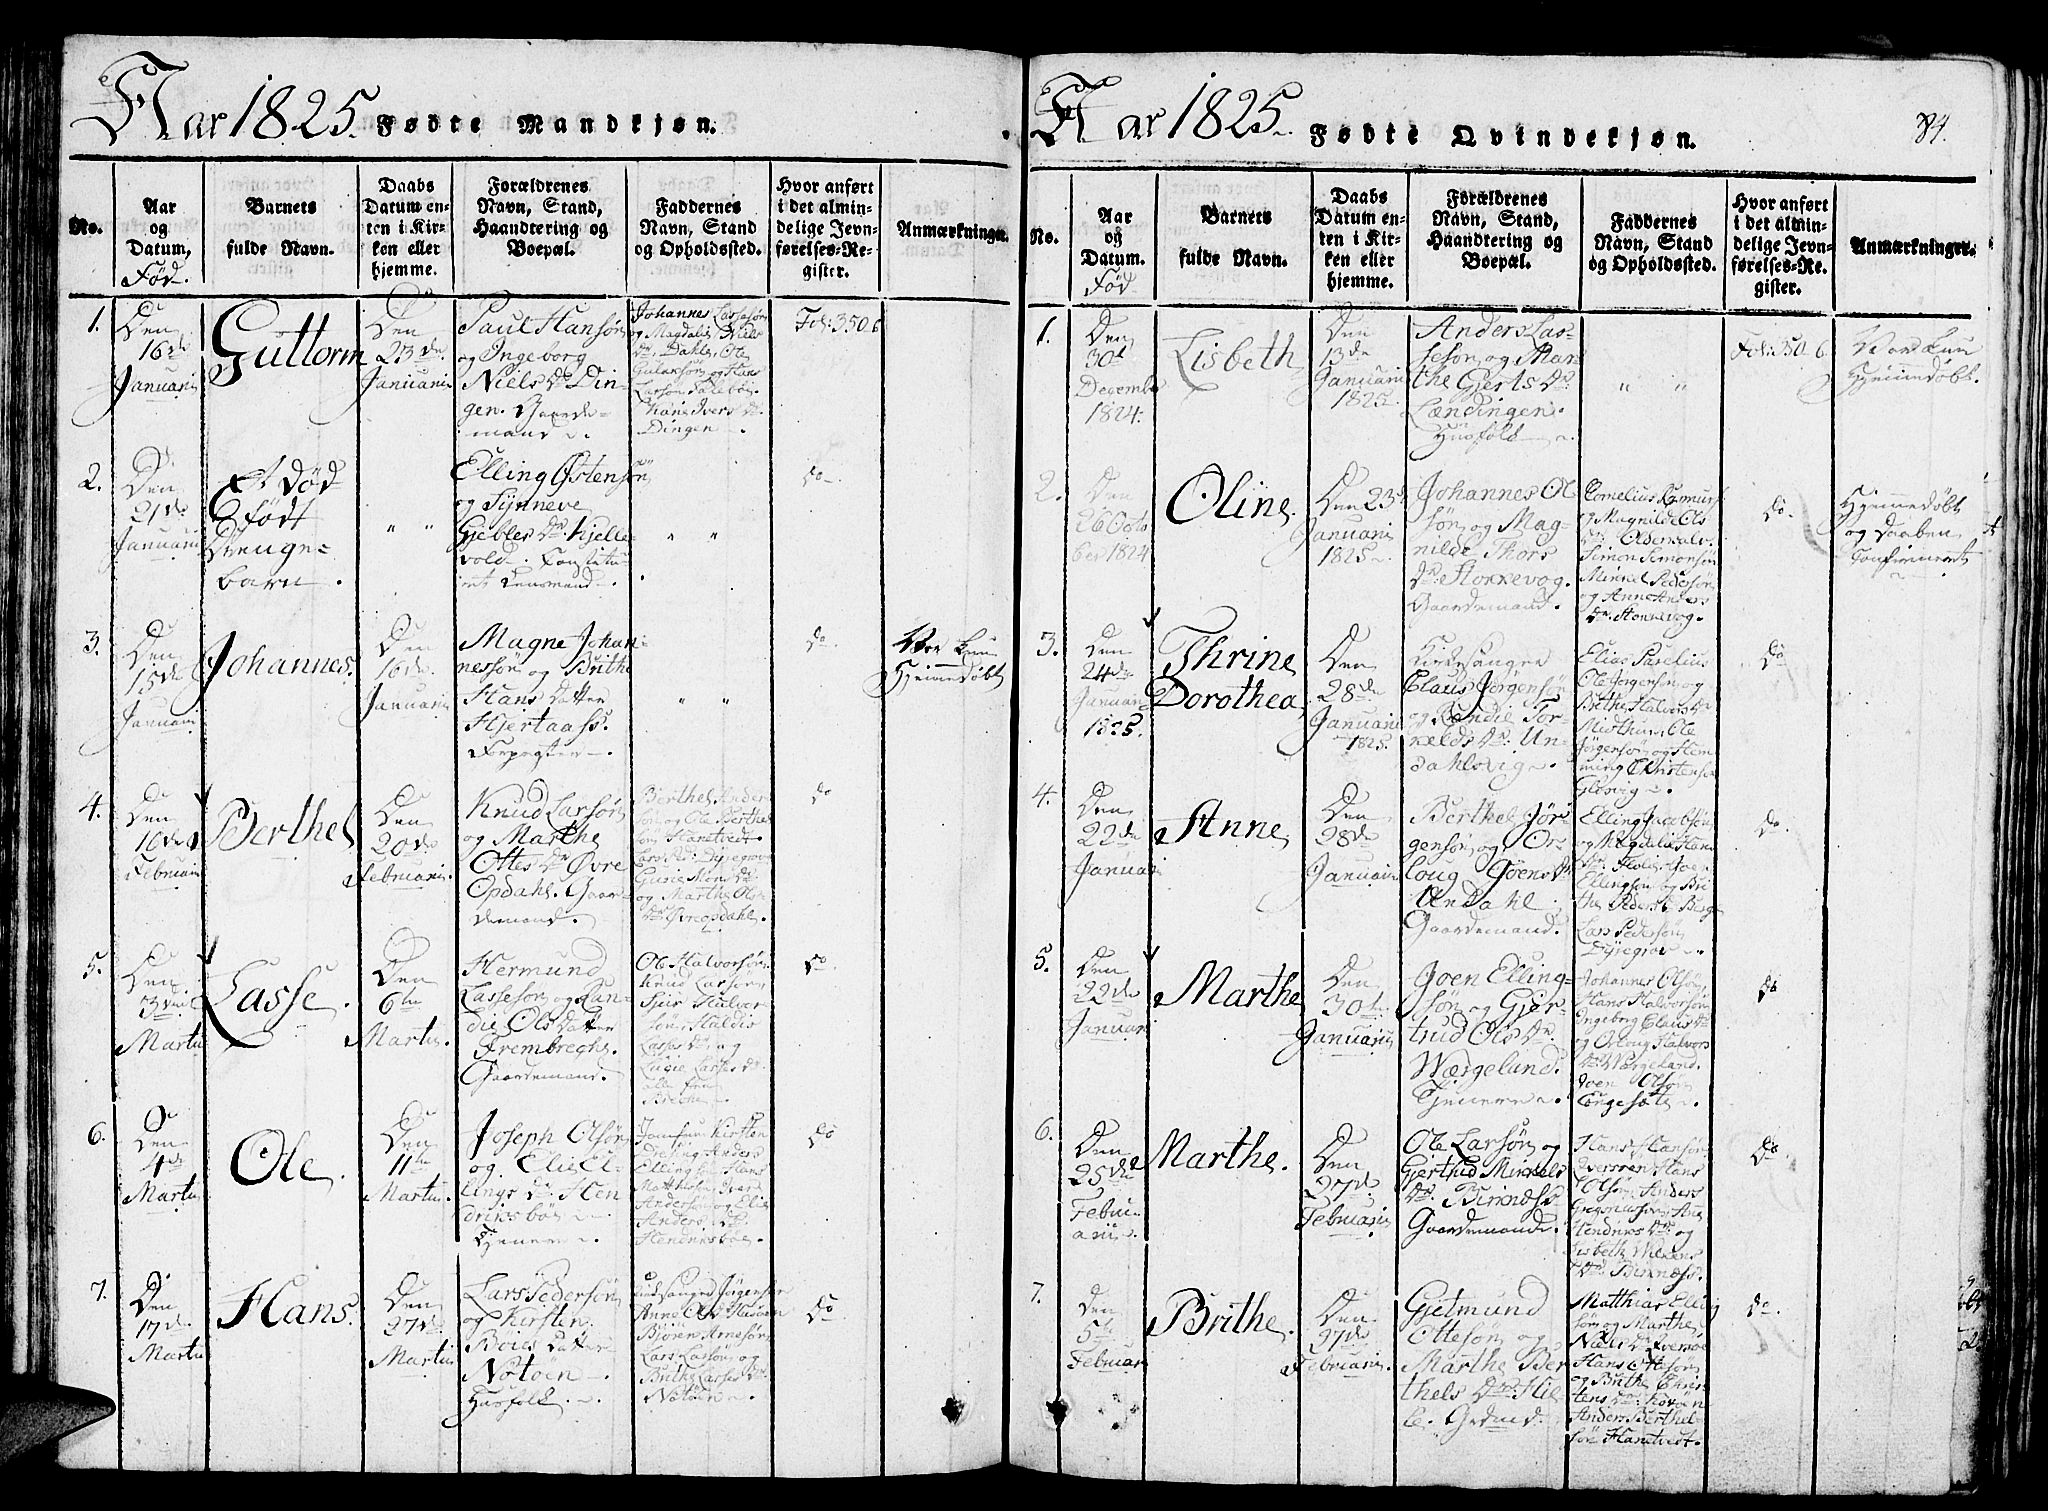 Aar 1825. Fødte Mandkjøn.
No.
Aar
og
Datum,
Fød.
Barnets
fulde Navn.
Daabs
Datum en-
ten i Kir-
ken eller
hjemme.
Forældrenes
Navn, Stand,
Haandtering og
Boepæl.
Faddernes
Navn, Stand
og Opholdssted.
Hvor anført
i det almin-
delige Jevn-
førelses-Re-
gister.
Anmærkninger.
1.
Den
16de
Januarii
Guttorm
Den
23de
Januarii
Paul Hansøn
og Ingeborg
Niels Dr Din-
gen. Gaarde-
mand
Johannes Lassesøn
og Magdalis Niels
Dr. Dahle, Ole
og Hans
Larsøn
Kari Ivers Dr.
Dingen
Fol: 350 6
2.
Den
21de
Januarii
Et død
født
Drenge-
barn.
" "
Elling Østensøn
og Synneve
Gjebles Dr Kjelle-
vold. Constitu-
eret Lensmand
" "
do
3.
Den
15de
Januarii
Johannes.
Den
16de
Januarii
Magne Johan-
nessøn og Brithe
Hans Datter
Hjertaass.
Forpagter
" "
do
Var kun
Hjemmedøbt
4.
Den
10de
Februarii
Berthel
Den
20de
Februarii.
Knud Larsøn
og Marthe
Ottes Dr Øvre
Opdahl. Gaar-
demand.
Berthel Ander-
søn og Ole Berthel
søn Hanetvedt
og Marthe Ols
Dr Øvreopdahl.
do
5.
Den
3die
Martii
Lasse.
Den
6te
Martii.
Hermund
Lassesøn og Ran-
die Ols Datter
Frembreghe.
Gaardemand.
Ole Halvorsøn
Knud Larsøn
Siur Halvor
søn, Haldis
Lasses Dr. og
Lasses Dr.
alle fra
do.
6.
Den
4de
Martii
Ole.
Den
11te
Martii.
Joseph Olsøn
og Elie El-
lings Dr. Hen
driksbøe
Tjenere
Jomfru Kirsten
Anders
Elling Hans
Matthisøn Iver
Andersøn og Elie
Anders Dr.
Hendriksbøe.
do
7.
Den
17de
Martii
Hans.
Den
27de
Martii
Lars Pedersøn
og Kirsten
Bøies Datter
Notøen
Husfolk.
Jørgensen
Anne
Bjøren Arnesøn
Lars Larsøn og
Brithe Larses Dr.
Notøen
do
Aar 1825. Fødte Qvindekjøn.
84.
No.
Aar
og
Datum.
Fød
Barnets
fulde Navn.
Daabs
Datum en-
ten i Kir-
ken eller
hjemme.
Forældrenes
Navn, Stand,
Haandtering og
Boepæl.
Faddernes
Navn, Stand
og Opholdssted.
Hvor anført
i det almin-
delige Jevn-
førelses-Re-
gister.
Anmærkninger.
1.
Den
30te
December
1824.
Lisbeth
Den
13de
Januarii
1825.
Anders Las-
sesøn og Mar-
the Gjerts Dr.
Lændingen.
Husfolk
" "
Fol: 350 6.
Var kun
Hjemmedøbt.
2.
Den
26 Octo
ber 1824
Oline.
Den 23de
Januarii
1825.
Johannes Ol
søn og Mag-
nilde Thors
Dr: Stokkevog.
Gaardemand.
Cornelius Rasmus
og Magnilde Ols
Dr Oldervalv.
Simon Simonsøn
Mikkel Pedersøn
og Anne Anders
Dr Stokkevog.
do.
Hjemmedøbt
og Daaben
Confirmeret
3.
Den
24de
Januarii
1825.
Thrine
Dorothea,
Den
28de
Januarii
1825.
Kirkesanger
Claus Jørgensøn
og Randie Tor-
kelds Dr: Un-
dahlsvig.
Elias
Ole Jørgensøn og
Brithe Halvors Dr
Midthun, Ole
Jørgensøn og Flem
ming Christensøn
Glesvig.
do
4.
Den
22de
Januarii
Anne
Den
28de
Januarii
Berthel Jør
gensøn og Or-
loug Joens Dr
Undahl.
Gaardemand.
Elling Jacobsøn
og Magdalis Hans
Dr. Joe
Ellingsøn og Bri
the Peders Dr Berge
Lars Pedersøn
Dyregrov
do.
5.
Den
22de
Januarii
Marthe
Den
30te
Januarii
Joen Elling-
søn og Gjer-
trud Ols Dr.
Wærgelund.
Tjenere.
Johannes Olsøn,
Hans Halvorsøn
Ingeborg Claus Dr
og Orloug Halvors
Dr Wærgeland.
Joen Olsøn
Longesæter.
do
6.
Den
25de
Februa-
arii.
Marthe.
Den
27de
Februarii
Ole Larsøn og
Gjertrud Mikkels
Dr. Birkness
Gaardemand.
Hans Hansøn
Hans
Olsøn, Anders
Anne
Hendriks Dr. og
Lisbeth Mikkels
Dr. Birkness.
do
7.
Den
5te
Februarii
Brithe.
Den
27de
Februarii.
Gjetmund
Ottesøn og
Marthe Ber
thels Dr. Hie
le. Grdmd.
Matthias Elling
søn og Marthe
Niels Dr
Hans Ottesøn
og Brithe Chris
tens Dr.
Anders Berthel
søn Hanetvedt.
do.